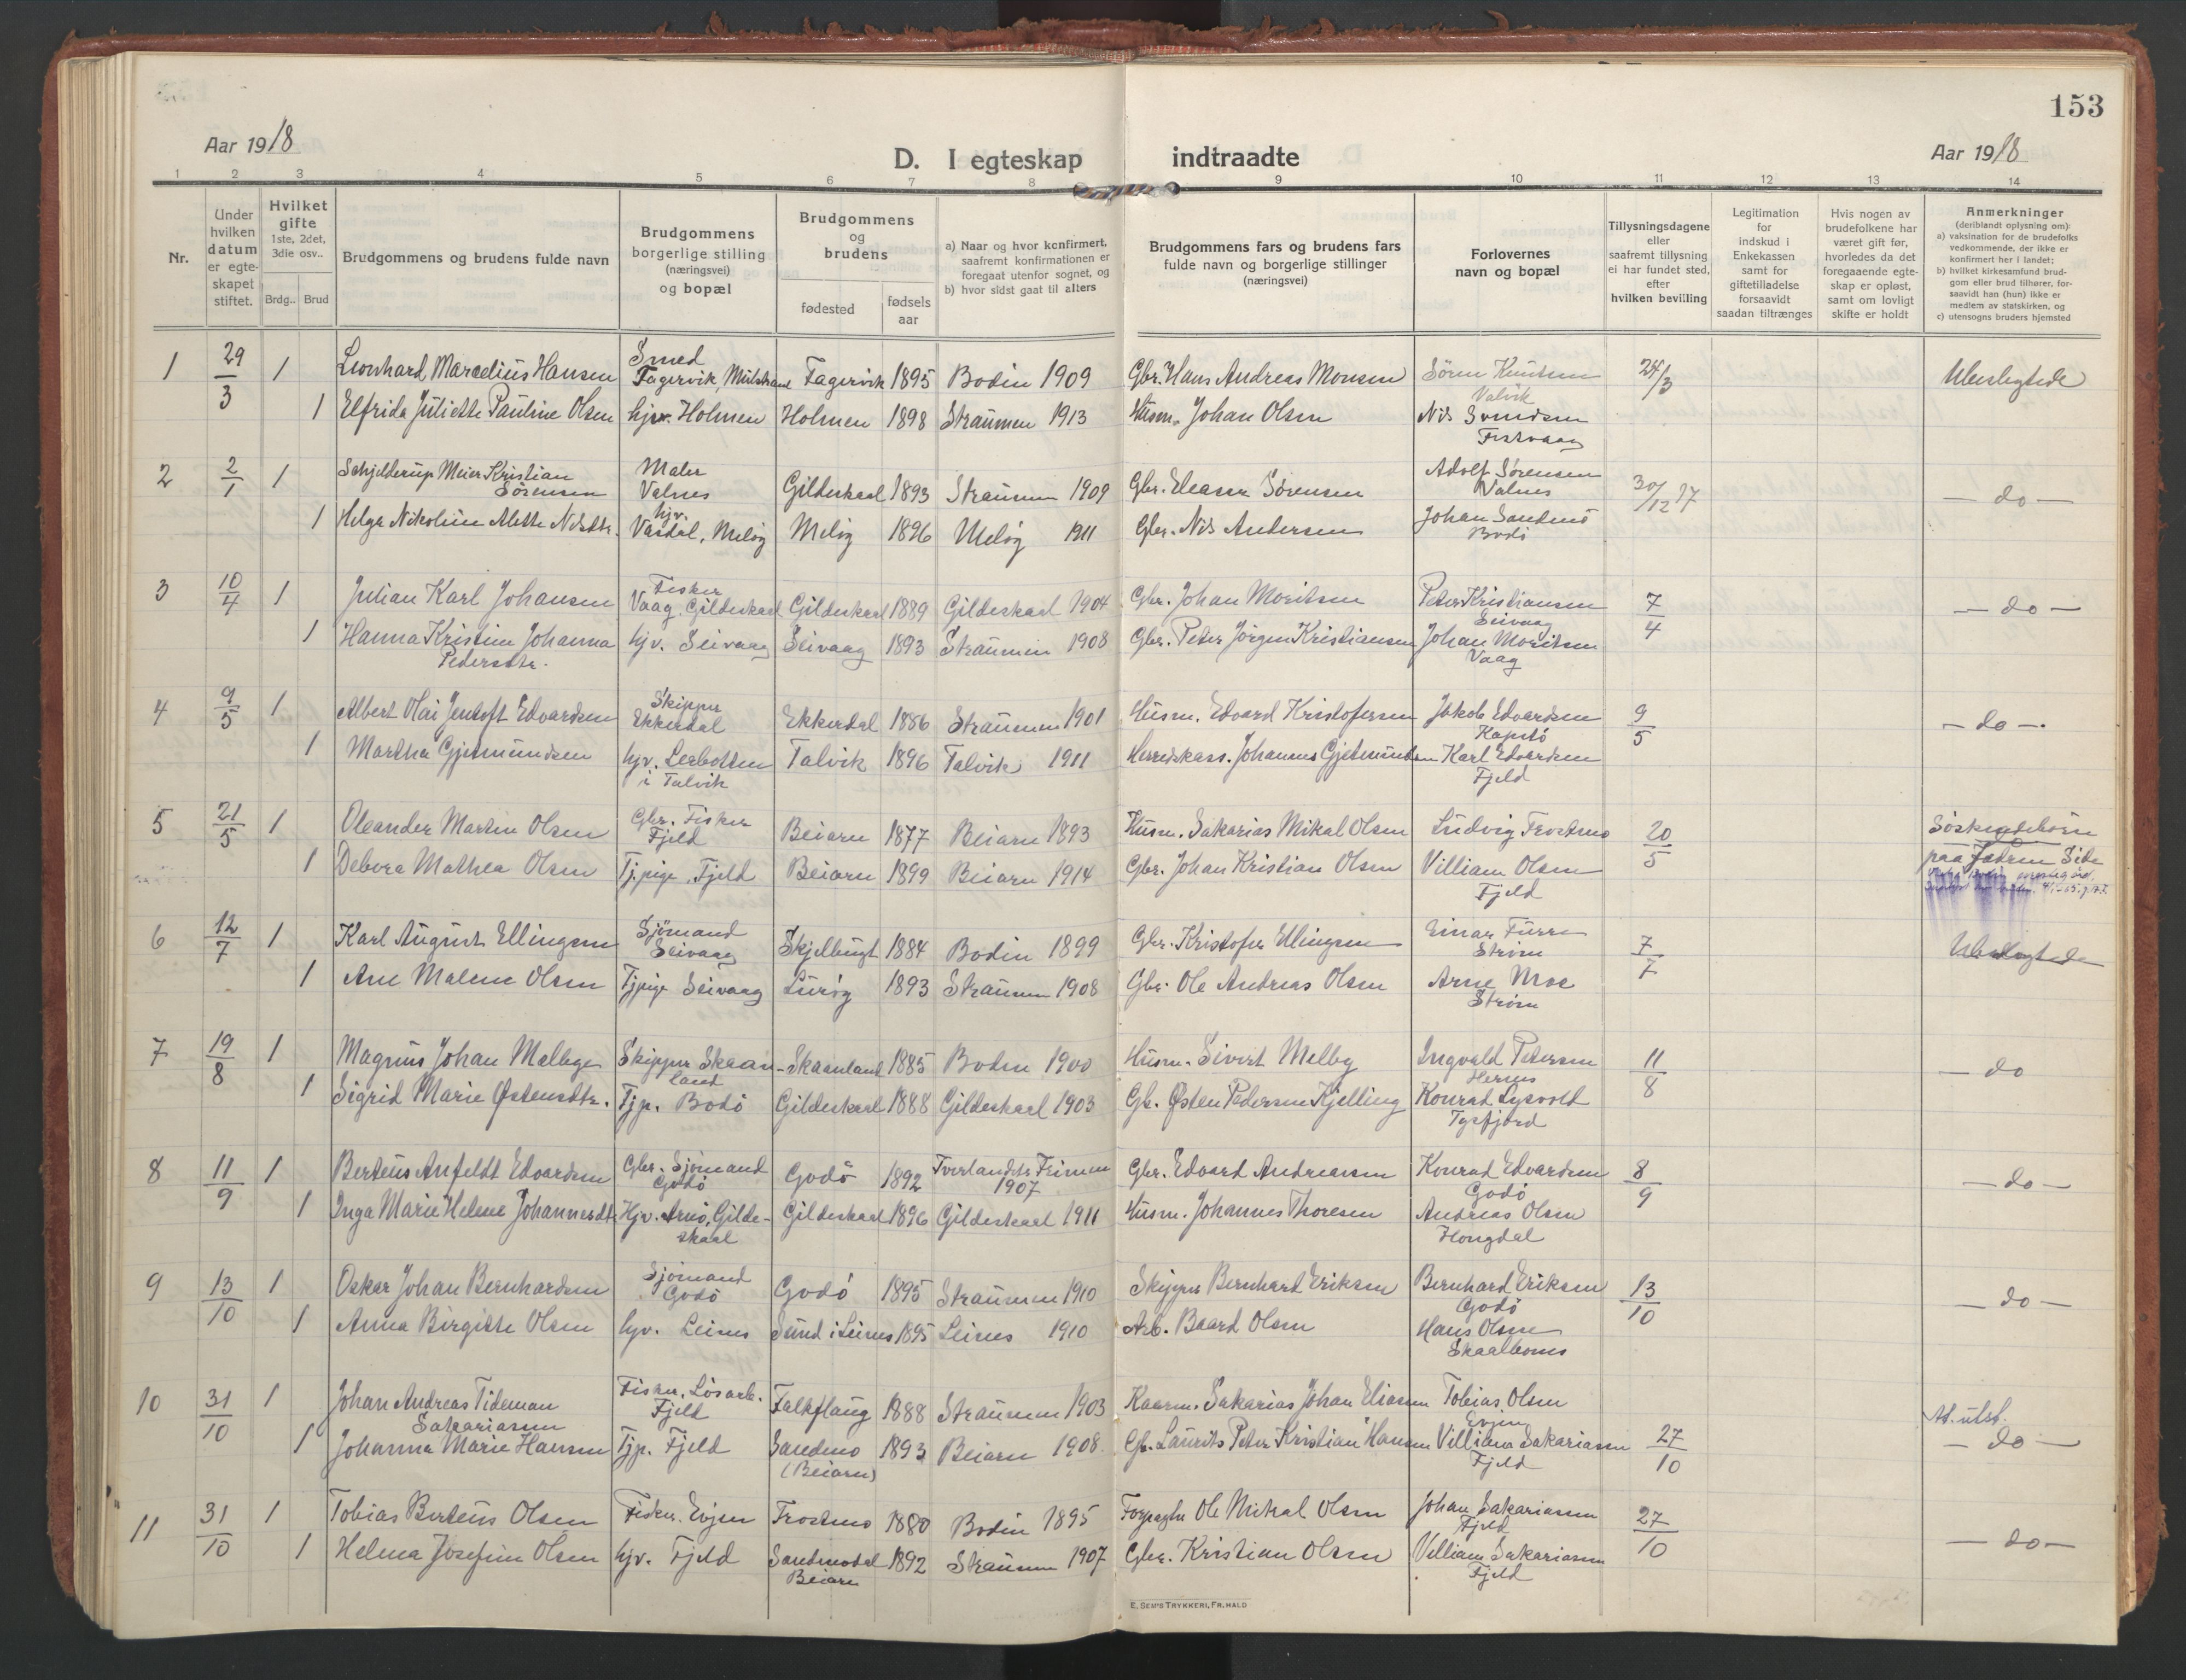 153
Aar 1918
D. I egteskap indtraadte
Aar 1918
1 2 3 4 5 6 7 8 9 10 11 12 13 14
Nr.
Under hvilken datum er egteskapet stiftet.
Hvilket gifte 1ste, 2det, 3die osv..
Brdg.. Brud
Brudgommens og brudens fulde navn
Brudgommens borgerlige stilling (næringsvei) og bopæl
Brudgommens og brudens
fødested
fødsels aar
a) Naar og hvor konfirmert, saafremt konfirmationen er foregaat utenfor sognet, og
b) hvor sidst gaat til alters
Brudgommens fars og brudens fars fulde navn og borgerlige stillinger (næringsvei)
Forlovernes navn og bopæl
Tillysningsdagene eller saafremt tillysning ei har fundet sted, efter hvilken bevilling
Legitimation for indskud i Enkekassen samt for giftetilladelse forsaavidt saadan tiltrænges
Hvis nogen av brudefolkene har været gift før, hvorledes da det foregaaende egteskap er opløst, samt om lovligt skifte er holdt
Anmerkninger (deriblandt oplysning om):
a) vaksination for de brudefolks vedkommende, der ikke er konfirmert her i landet;
b) hvilket kirkesamfund brudgom eller brud tilhører, forsaavidt han (hun) ikke er medlem av statskirken, og
c) utensogns bruders hjemsted
1 29/3 1 Leonhard Marcelius Hansen Smed Fagervik, Mulstrand Fagervik 1895 Bodin 1909 Gbr. Hans Andreas Monsen Sören Knutsen Valvik 24/3 Ubeslegtede
1 Elfrida Juliette Pauline Olsen hjv. Holmen Holmen 1898 Straumen 1913 Husm. Johan Olsen Nils Svendsen
2 2/1 1 Schjelderup Meier Kristian Sörensen Maler Valnes Gildeskaal 1893 Straumen 1909 Gbr. Eleaser Sörensen Adolf Sörensen Valnes 30/12 17 — do —
1 Helga Nikoline Alette Nilsdtr. hjv. Vasdal, Meløy Meløy 1896 Meløy 1911 Gbr. Nils Andersen Johan Sandmo Bodö
3 10/4 1 Julian Karl Johansen Fisker Vaag, Gildeskaal Gildeskaal 1889 Gildeskaal 1904 Gbr. Johan Moritsen Peter Kristiansen Seivaag 7/4 — do —
1 Hanna Kristine Johanna Pedersdtr. hjv. Seivaag Seivaag 1893 Straumen 1908 Gbr. Peter Jörgen Kristiansen Johan Moritsen Vaag
4 9/5 1 Albert Olai Jentoft Edvardsen Skipper Ekkerdal Ekkerdal 1886 Straumen 1901 Husm. Edvard Kristofersen Jakob Edvardsen Kapstö 9/5 — do —.
1 Martha Gjetmundsen hjv. Leerbotten i Talvik Talvik 1896 Talvik 1911 Herredskass. Johannes Gjetmundsen Karl Edvardsen Fjeld
5 21/5 1 Oleander Martin Olsen Gbr. Fisker Fjeld Beiarn 1877 Beiarn 1893 Husm. Sakarias Mikal Olsen Ludvig Trostmo 20/5 Söskendebörn paa Fædrene Side
1 Debora Mathea Olsen Tj.pige, Fjeld Beiarn 1899 Beiarn 1914 Gbr. Johan Kristian Olsen Villiam Olsen Fjeld
6 12/7 1 Karl August Ellingsen Sjömand Seivaag Skjelbugt 1884 Bodin 1899 Gbr. Kristofer Ellingsen Einar Furre Ström 7/7 Ubeslegtede
1 Ane Malene Olsen Tjpige Seivaag Lurøy 1893 Straumen 1908 Gbr. Ole Andreas Olsen Arne Moe Ström
7 19/8 1 Magnus Johan Melbye Skipper Skaanland Skaanland 1885 Bodin 1900 Husm. Sivert Melby Ingvald Petersen Hernes 11/8 — do
1 Sigrid Marie Østensdtr. Tjp. Bodö Gildeskaal 1888 Gildeskaal 1903 Gb. Østen Pedersen Kjelling Konrad Lysvold Tysfjord
8 11/9 1 Berteus Anfeldt Edvardsen Gbr. Sjömand Godö Godö 1892 1907 Gbr. Edvard Andreassen Konrad Edvardsen Godö 8/9 — do —
1 Inga Marie Helene Johannesdtr Hjv. Arnö, Gildeskaal Gildeskaal 1896 Gildeskaal 1911 Husm. Johannes Thoresen Andreas Olsen Hongdal
9 13/10 1 Oskar Johan Bernhardsen Sjömand Godö Godö 1895 Straumen 1910 Skipper Bernhard Eriksen Bernhard Eriksen Godö 13/10 — do —
1 Anna Birgitte Olsen hjv. Leines Sund i Leines 1895 Leines 1910 Arb. Baard Olsen Hans Olsen
10 31/10 1 Johan Andreas Tideman Sakariasen Fisker, Lösarb. Fjeld Falkflaug 1888 Straumen 1903 Kaarm. Sakarias Johan Eliasen Tobias Olsen Evjen At. utst.
1 Johanna Marie Hansen Tjp. Fjeld Sandmo (Beiarn) 1893 Beiarn 1908 Gb. Laurits Peter Kristian Hansen Villiam Sakariasen Fjeld 27/10 — do —
11 31/10 1 Tobias Berteus Olsen Fisker, Evjen Trostmo 1880 Bodin 1895 Forpagter Ole Mikal Olsen Johan Sakariasen Fjeld 27/10 — do —
1 Helena Josefine Olsen hjv. Fjeld Sandmodal Beiarn 1892 Straumen 1907 Gbr. Kristian Olsen Villiam Sakariasen Fjeld
E. SEM'S TRYKKERI, FR. HALD